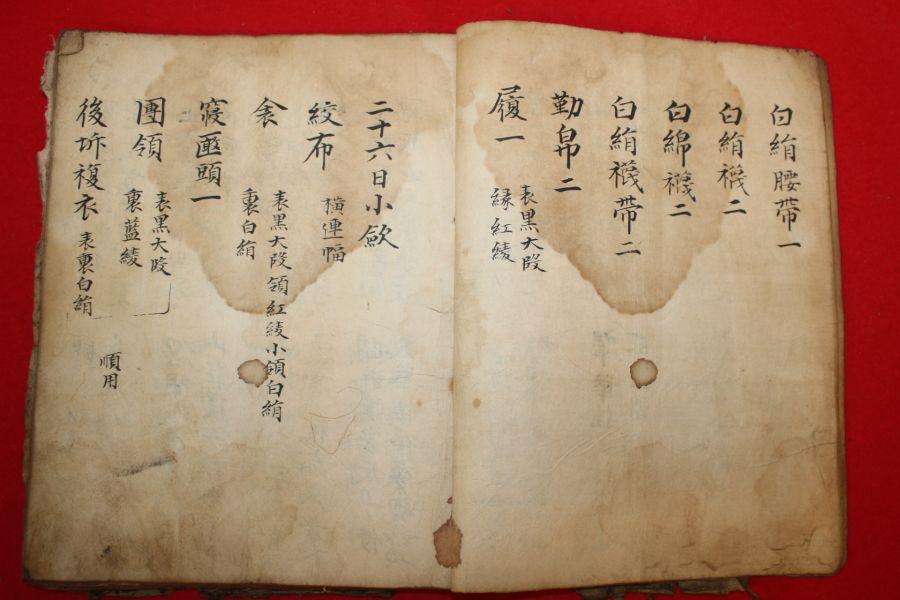 白絹腰帶一
白絹襪二
白綿襪二
白絹襪帶二
勒帛二
履一
表黑大段
緣紅綾
二十六日小斂
絞布
橫連幅
衾
表黑大段領紅綾小領白絹
裏白絹
寢匾頭一
團領
表黑大段
裏藍綾
後坼複衣
表裏白絹
順用